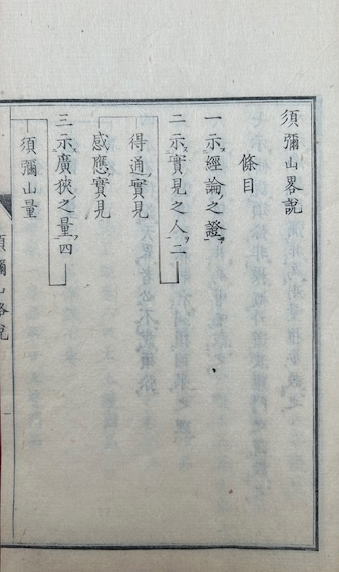 須彌山畧説
條目
一示經論之證
二示實見之人二
得通實見
感應實見
三示廣狹之量四
須彌山量
須彌山略説